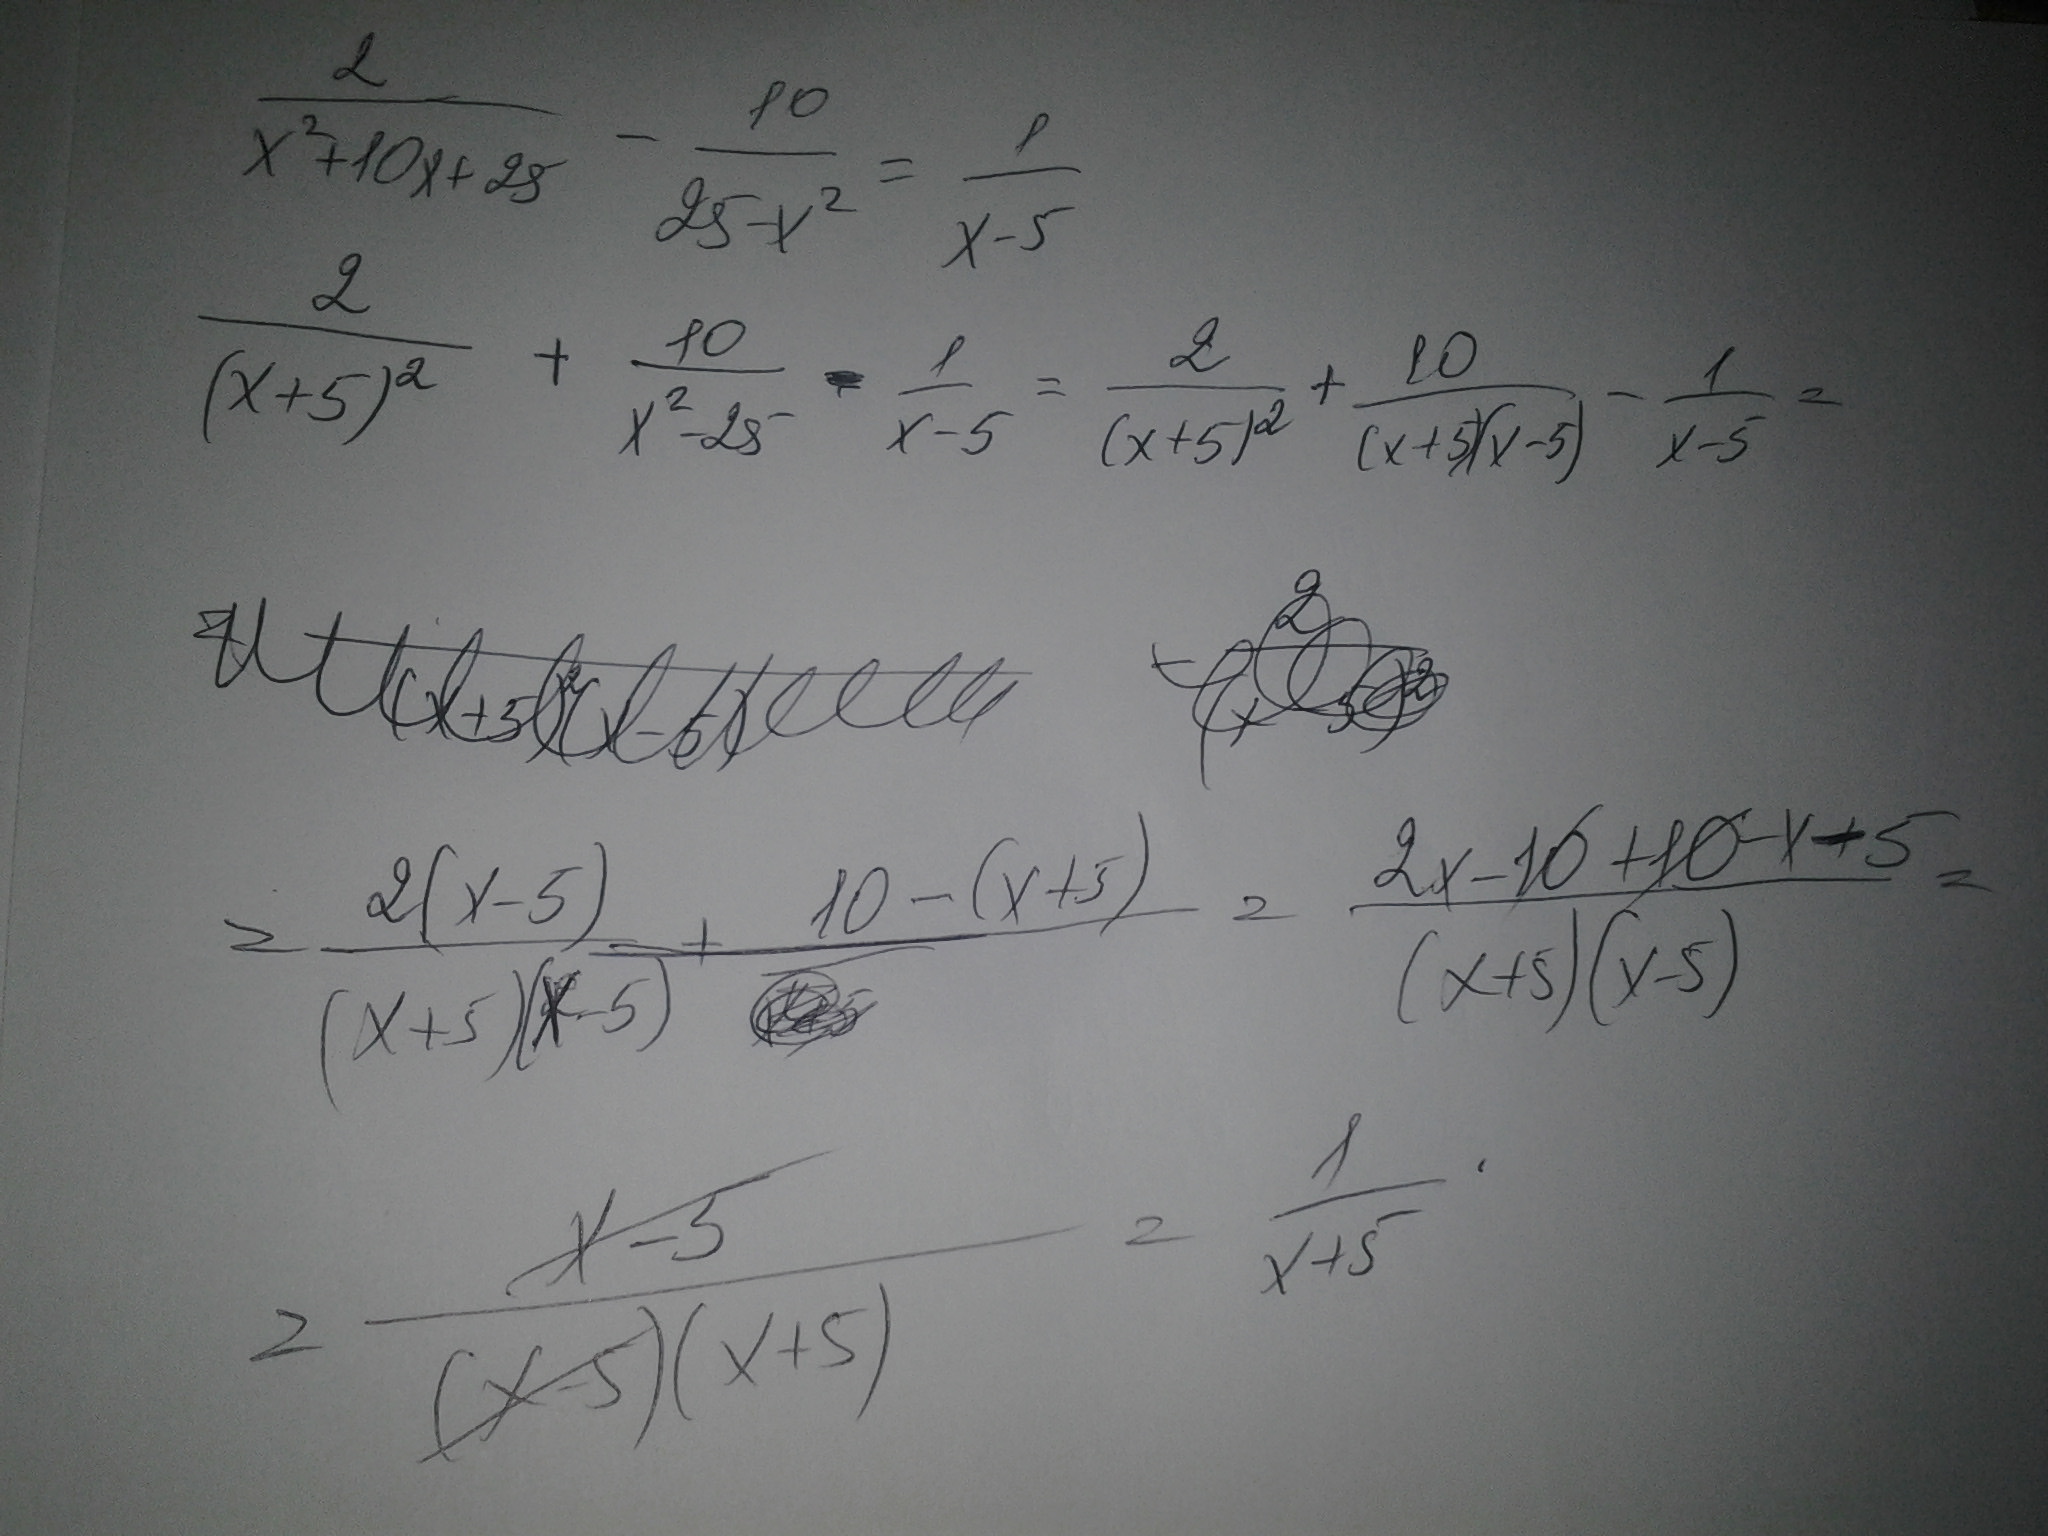 2/(x²+10x+25) - 10/(25-x²) = 1/(x-5)
2/(x+5)² + 10/(x²-25) - 1/(x-5) = 2/(x+5)² + 10/((x+5)(x-5)) - 1/(x-5) =
(x+5)²(x-5)
= (2(x-5) + 10-(x+5))/((x+5)(x-5)) = (2x-10+10-x+5)/((x+5)(x-5)) =
= (x-5)/((x-5)(x+5)) = 1/(x+5) .